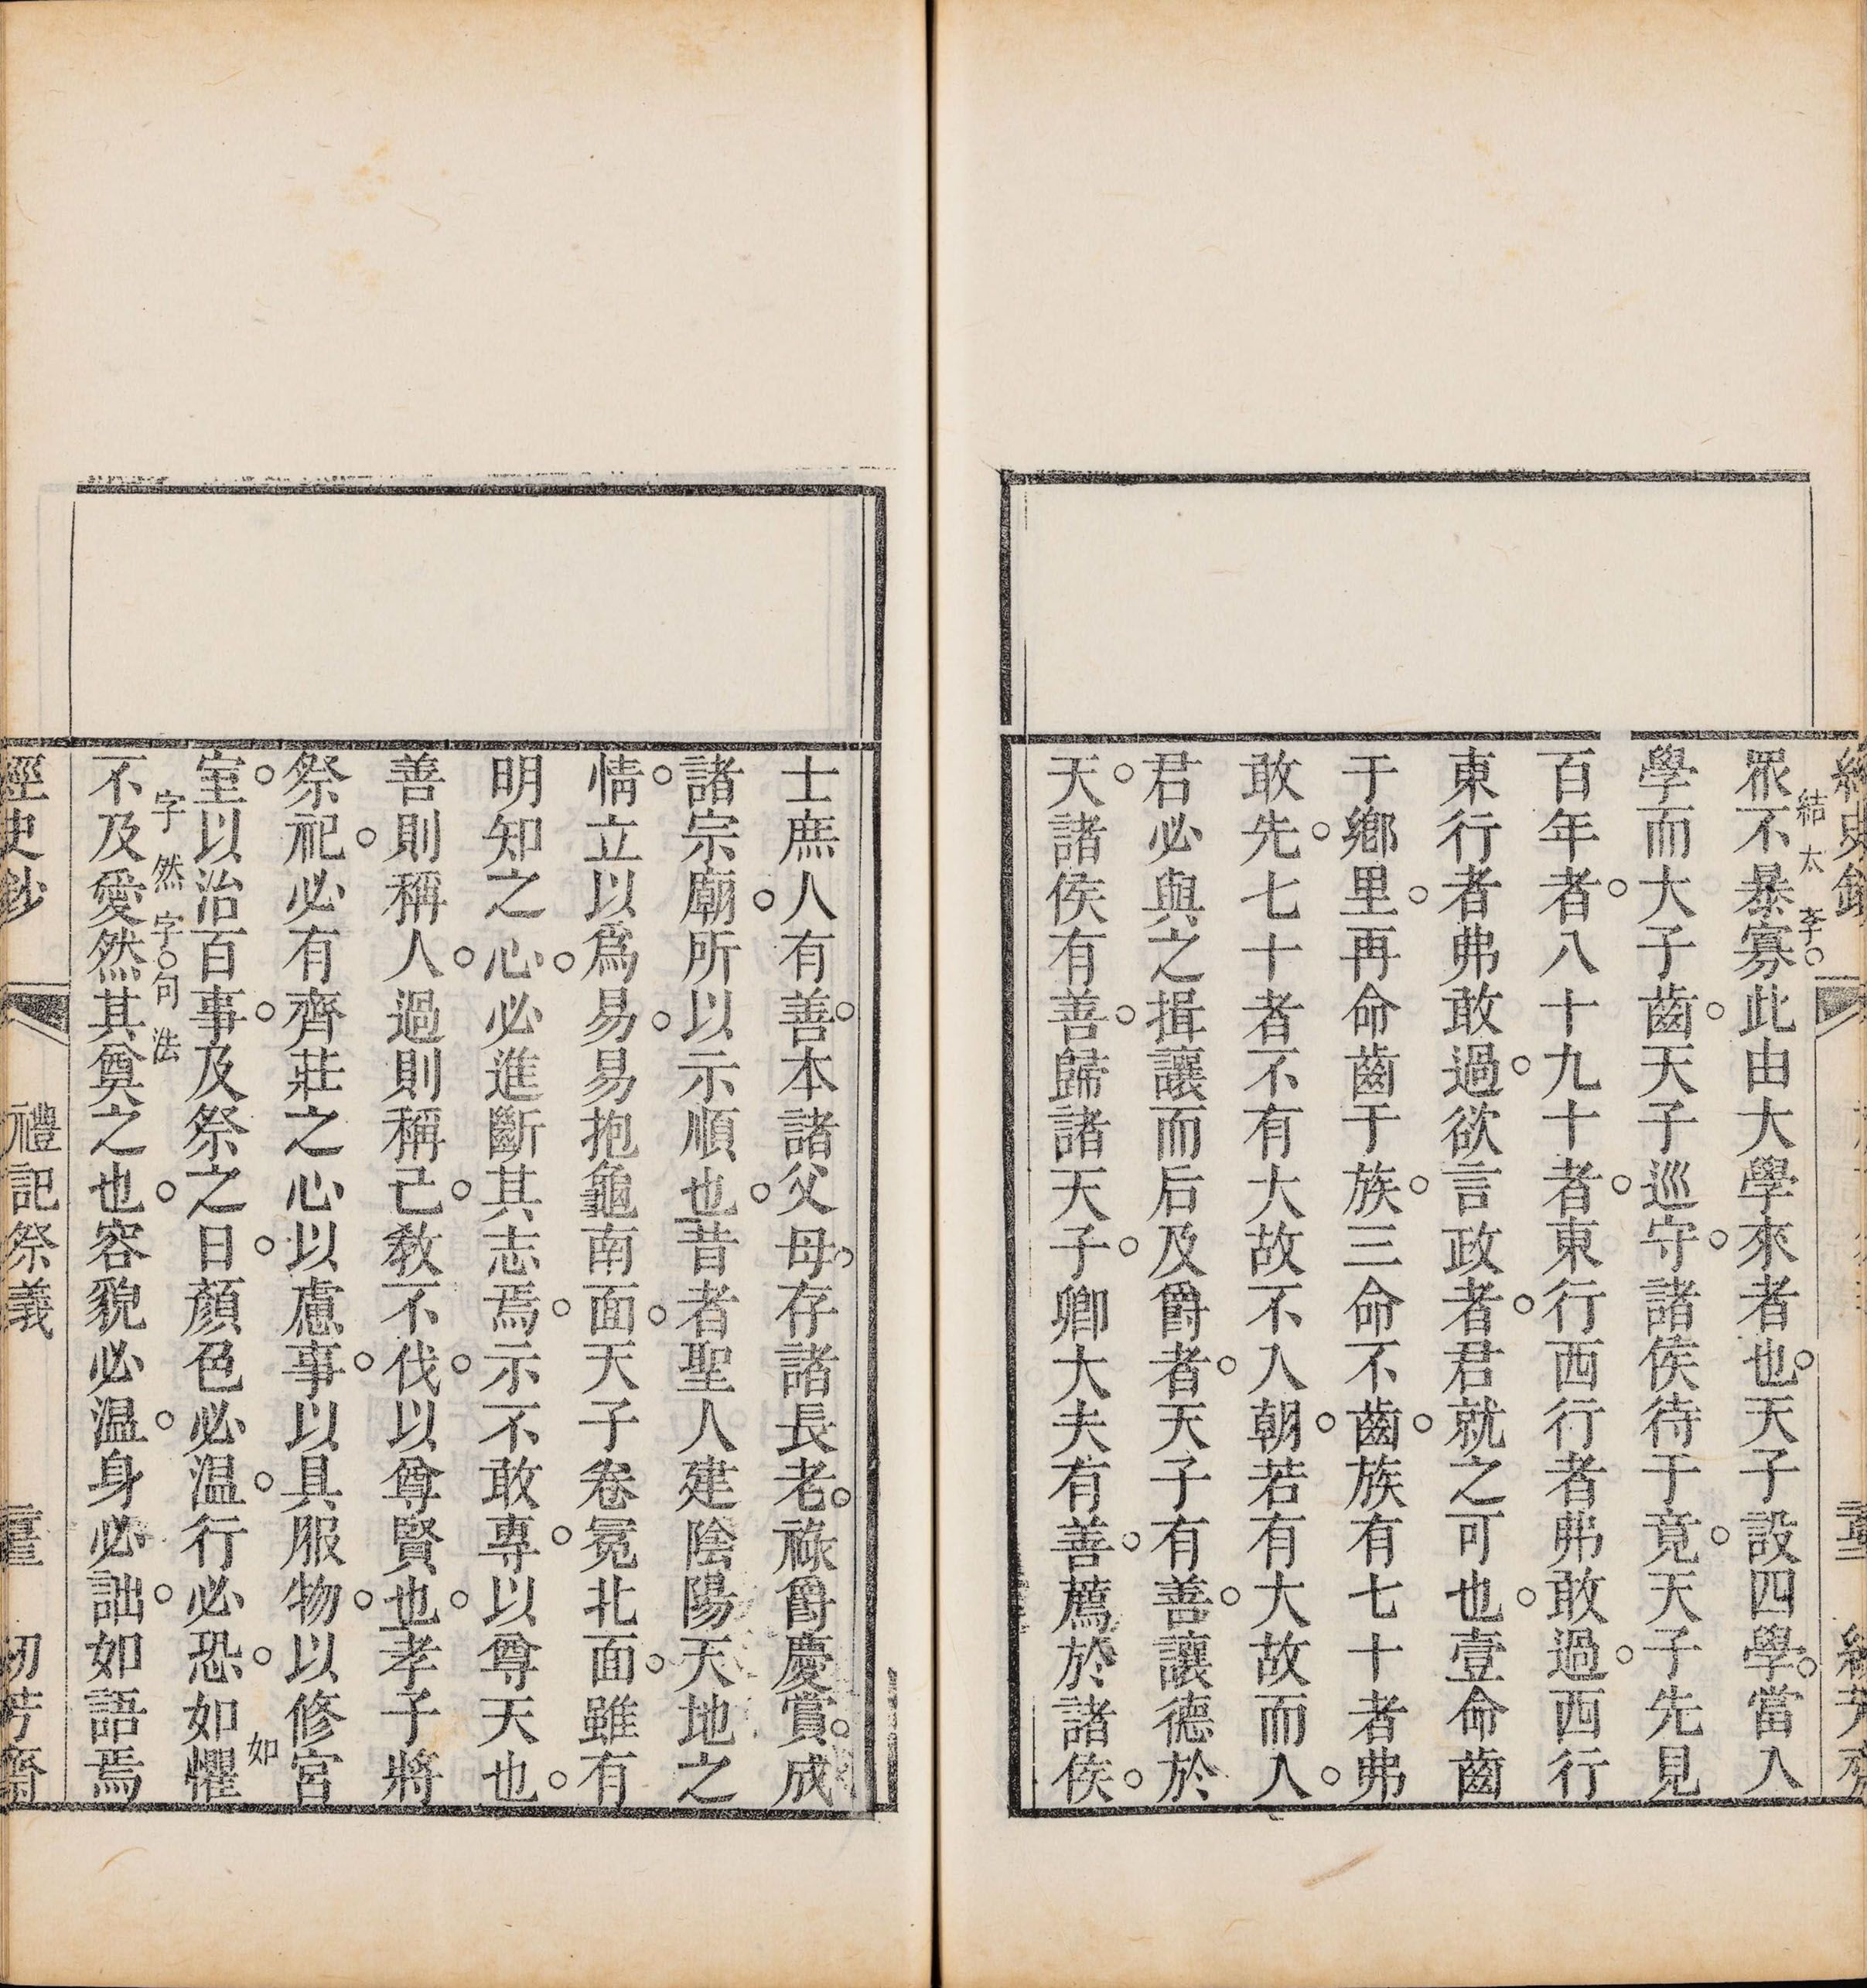 結太李○
眾不暴寡此由大學來者也○天子設四學○當入
學而大子齒○天子巡守○諸侯待于竟○天子先見
百年者○八十九十者○東行西行者弗敢過○西行
東行者弗敢過○欲言政者○君就之可也○壹命齒
于鄉里○再命齒于族○三命不齒○族有七十者弗
敢先○七十者不有大故不入朝○若有大故而入○
君必與之揖讓而后及爵者○天子有善○讓德於
天○諸侯有善○歸諸天子○卿大夫有善○薦於諸侯○
士庶人有善○本諸父母○存諸長老○祿爵慶賞○成
諸宗廟○所以示順也○昔者聖人建陰陽天地之
情○立以爲易○易抱龜南面○天子卷冕北面○雖有
明知之心○必進斷其志焉○示不敢專○以尊天也○
善則稱人○過則稱己○敎不伐○以尊賢也○孝子將
祭祀○必有齊莊之心以慮事○以具服物○以修宮
室○以治百事○及祭之日○顏色必温○行必恐○如懼
如
字然字○句法
不及愛然其奠之也○容貌必温○身必詘○如語焉
經史鈔
禮記祭義